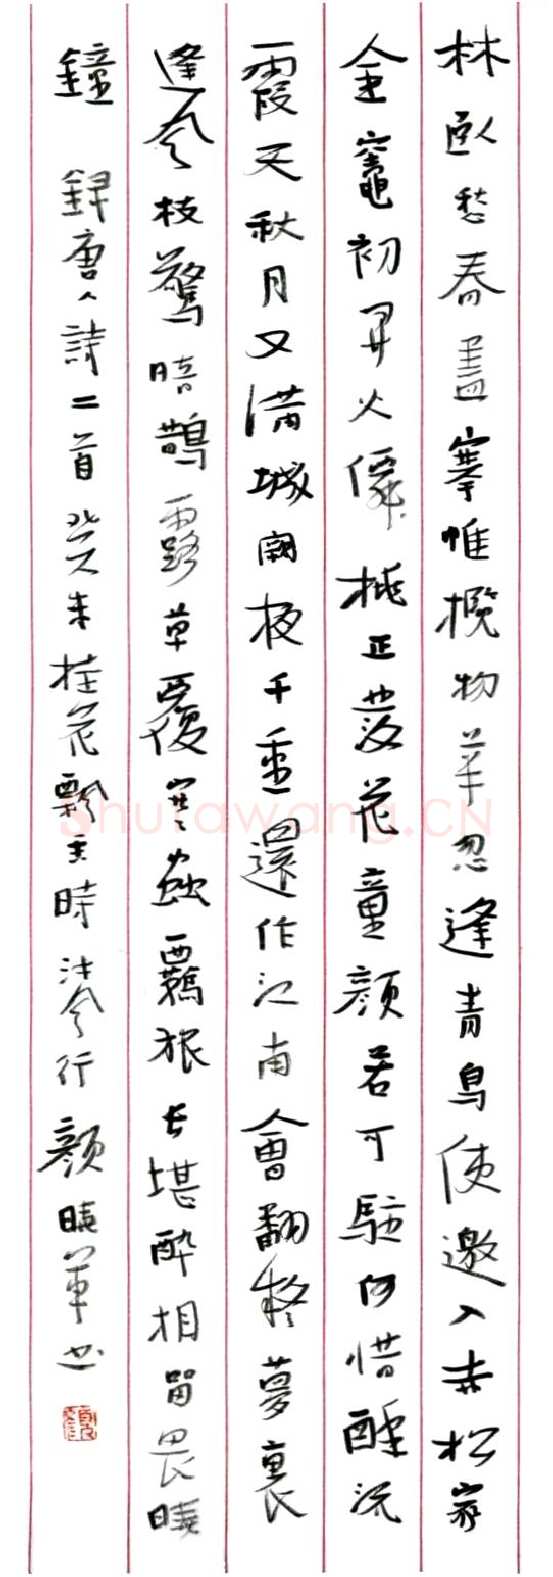 林臥愁春盡搴帷攬物華忽逢青鳥使邀入赤松家
金竈初開火僊桃正落花童顏若可駐何惜醉流
霞天秋月又滿城闕夜千重還作江南會翻疑夢裏
逢風枝驚暗鵲露草覆寒蟲羈旅長堪醉相留畏曉
鐘 錄唐人詩二首癸未桂花飄香時行顏曉書
Shufawang.CN